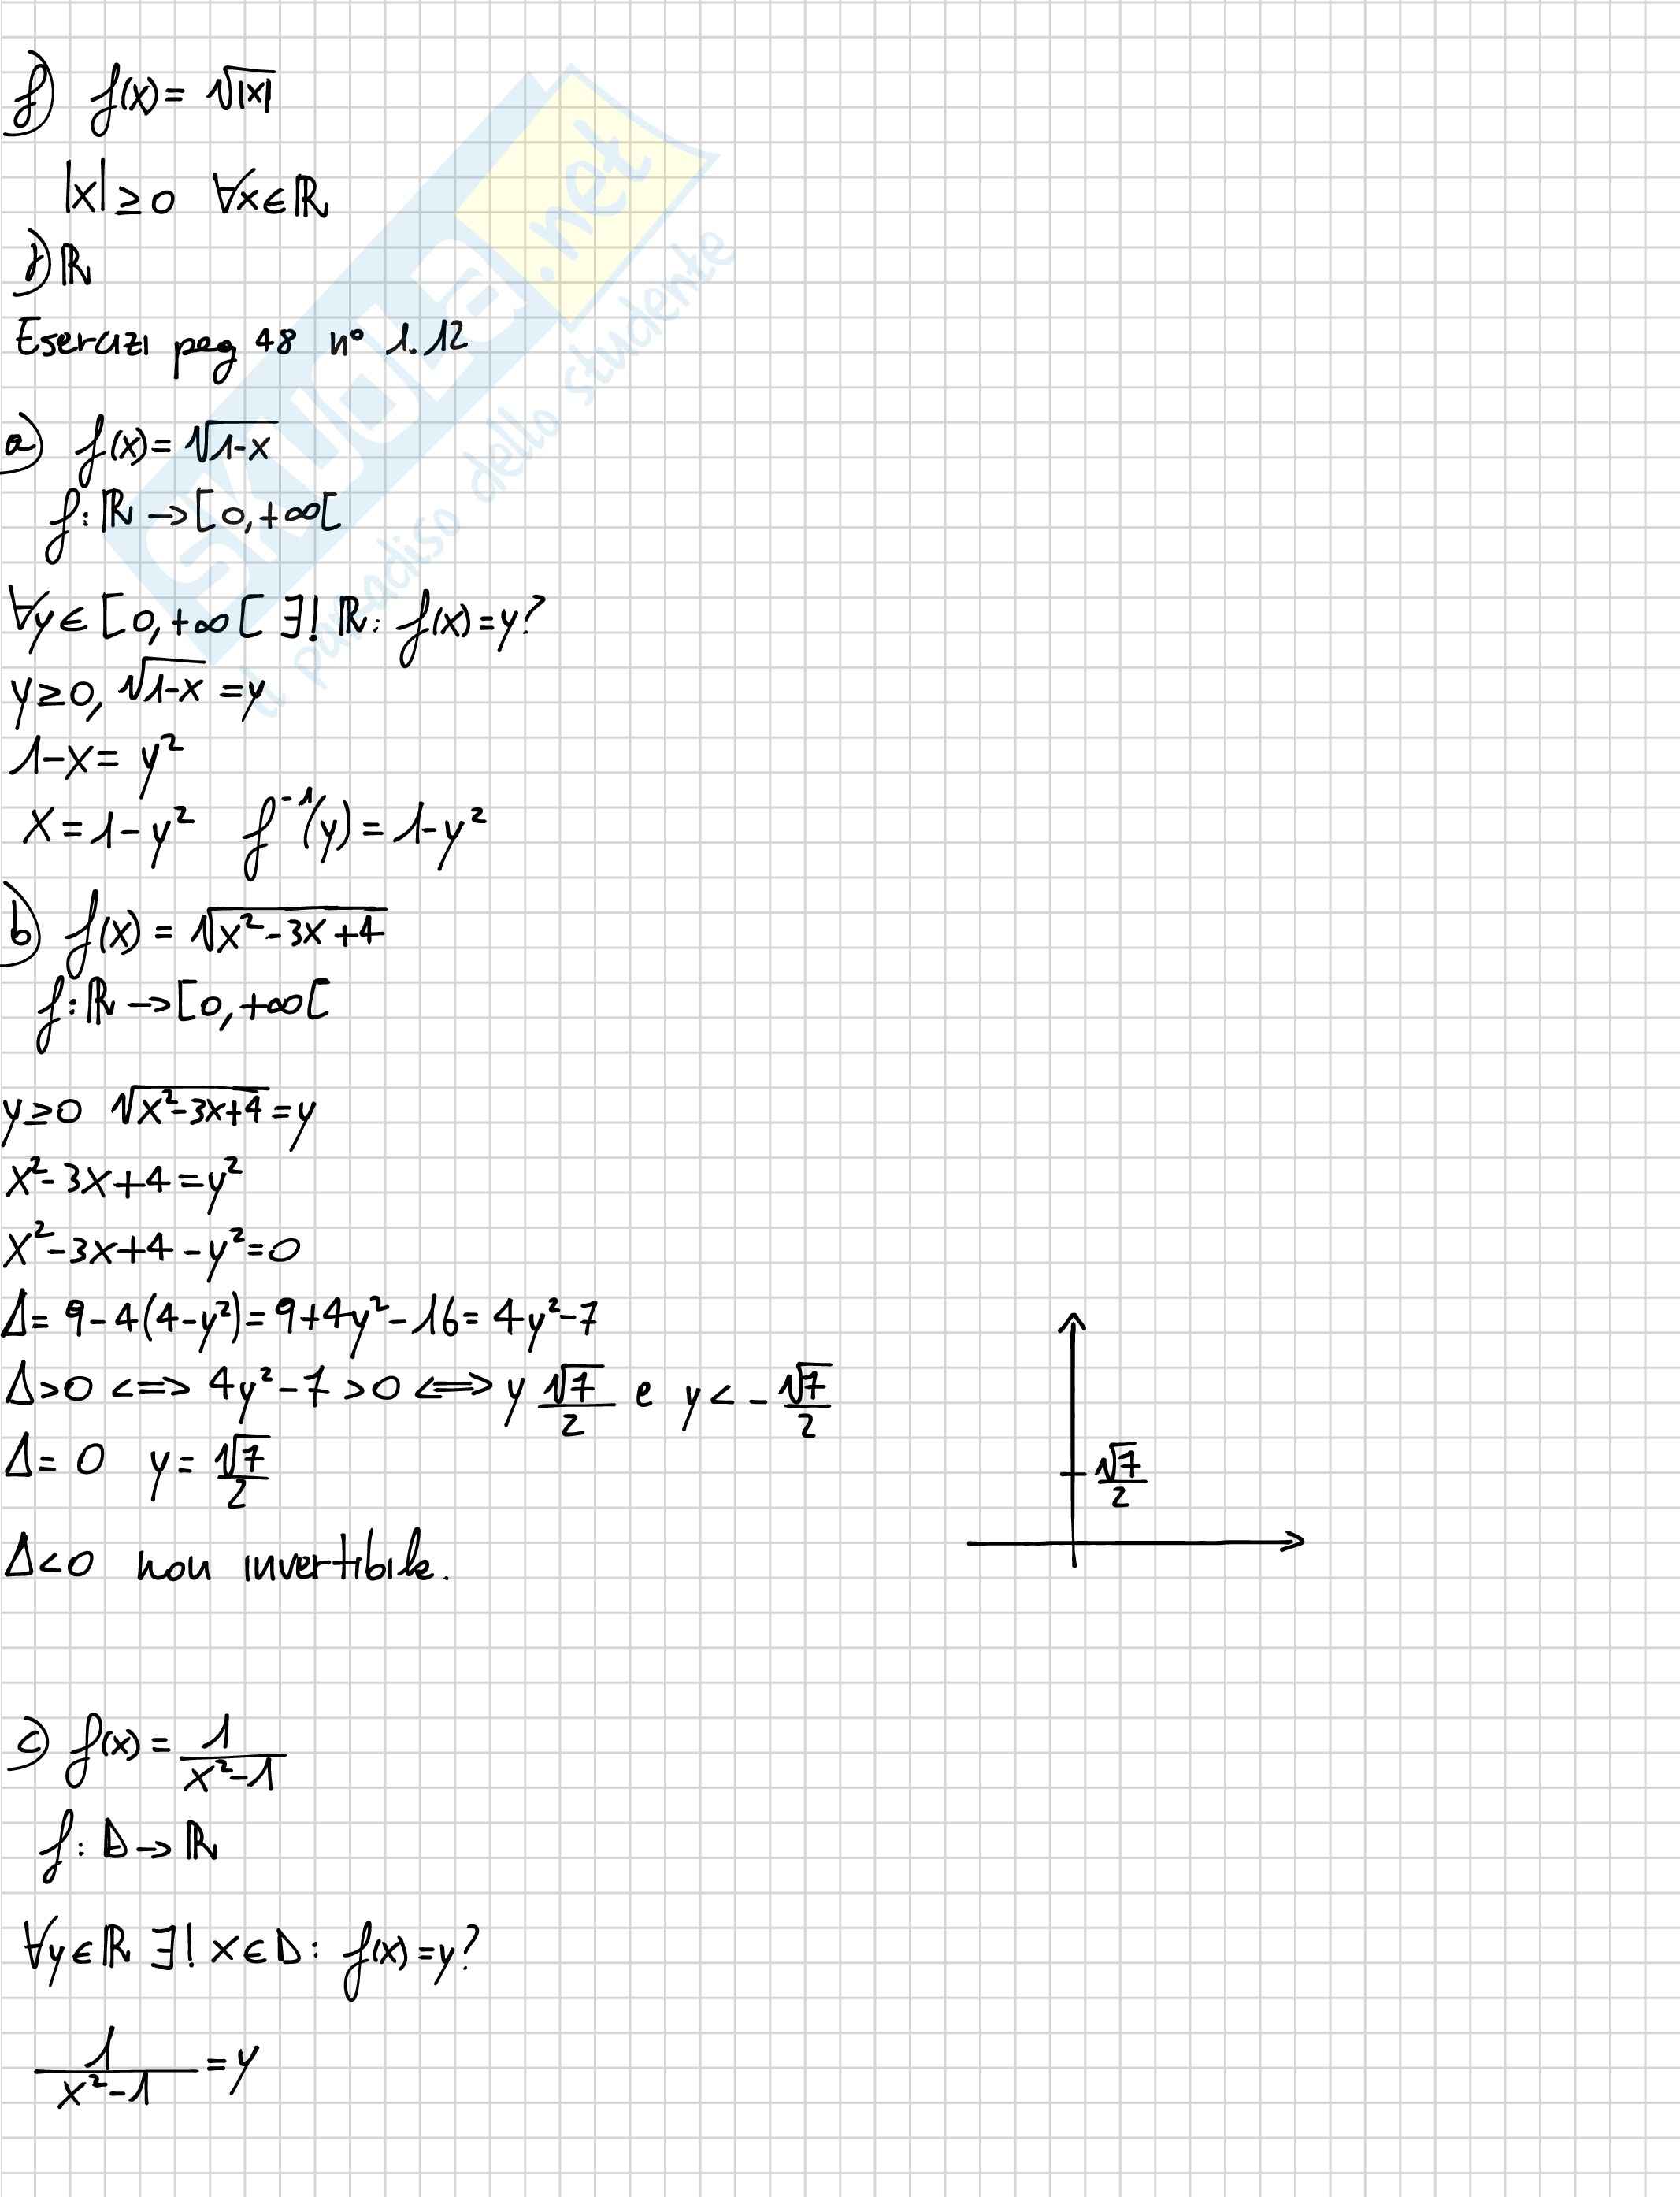 f) f(x) = √|x|
|x| ≥ 0 ∀x ∈ ℝ
f) ℝ
Esercizi pag 48 n° 1.12
a) f(x) = √(1-x)
f: ℝ → [0, +∞[
∀y ∈ [0, +∞[ ∃! ℝ: f(x) = y?
y ≥ 0, √(1-x) = y
1-x = y²
x = 1-y² f⁻¹(y) = 1-y²
b) f(x) = √(x²-3x+4)
f: ℝ → [0, +∞[
y ≥ 0 √(x²-3x+4) = y
x²-3x+4 = y²
x²-3x+4-y² = 0
Δ = 9-4(4-y²) = 9+4y²-16 = 4y²-7
Δ>0 <=> 4y²-7>0 <=> y √7/2 e y < -√7/2
Δ = 0 y = √7/2
√7/2
Δ<0 non invertibile.
c) f(x) = 1/(x²-1)
f: D → ℝ
∀y ∈ ℝ ∃! x ∈ D: f(x) = y?
1/(x²-1) = y
SKUOLA.net
il paradiso dello studente